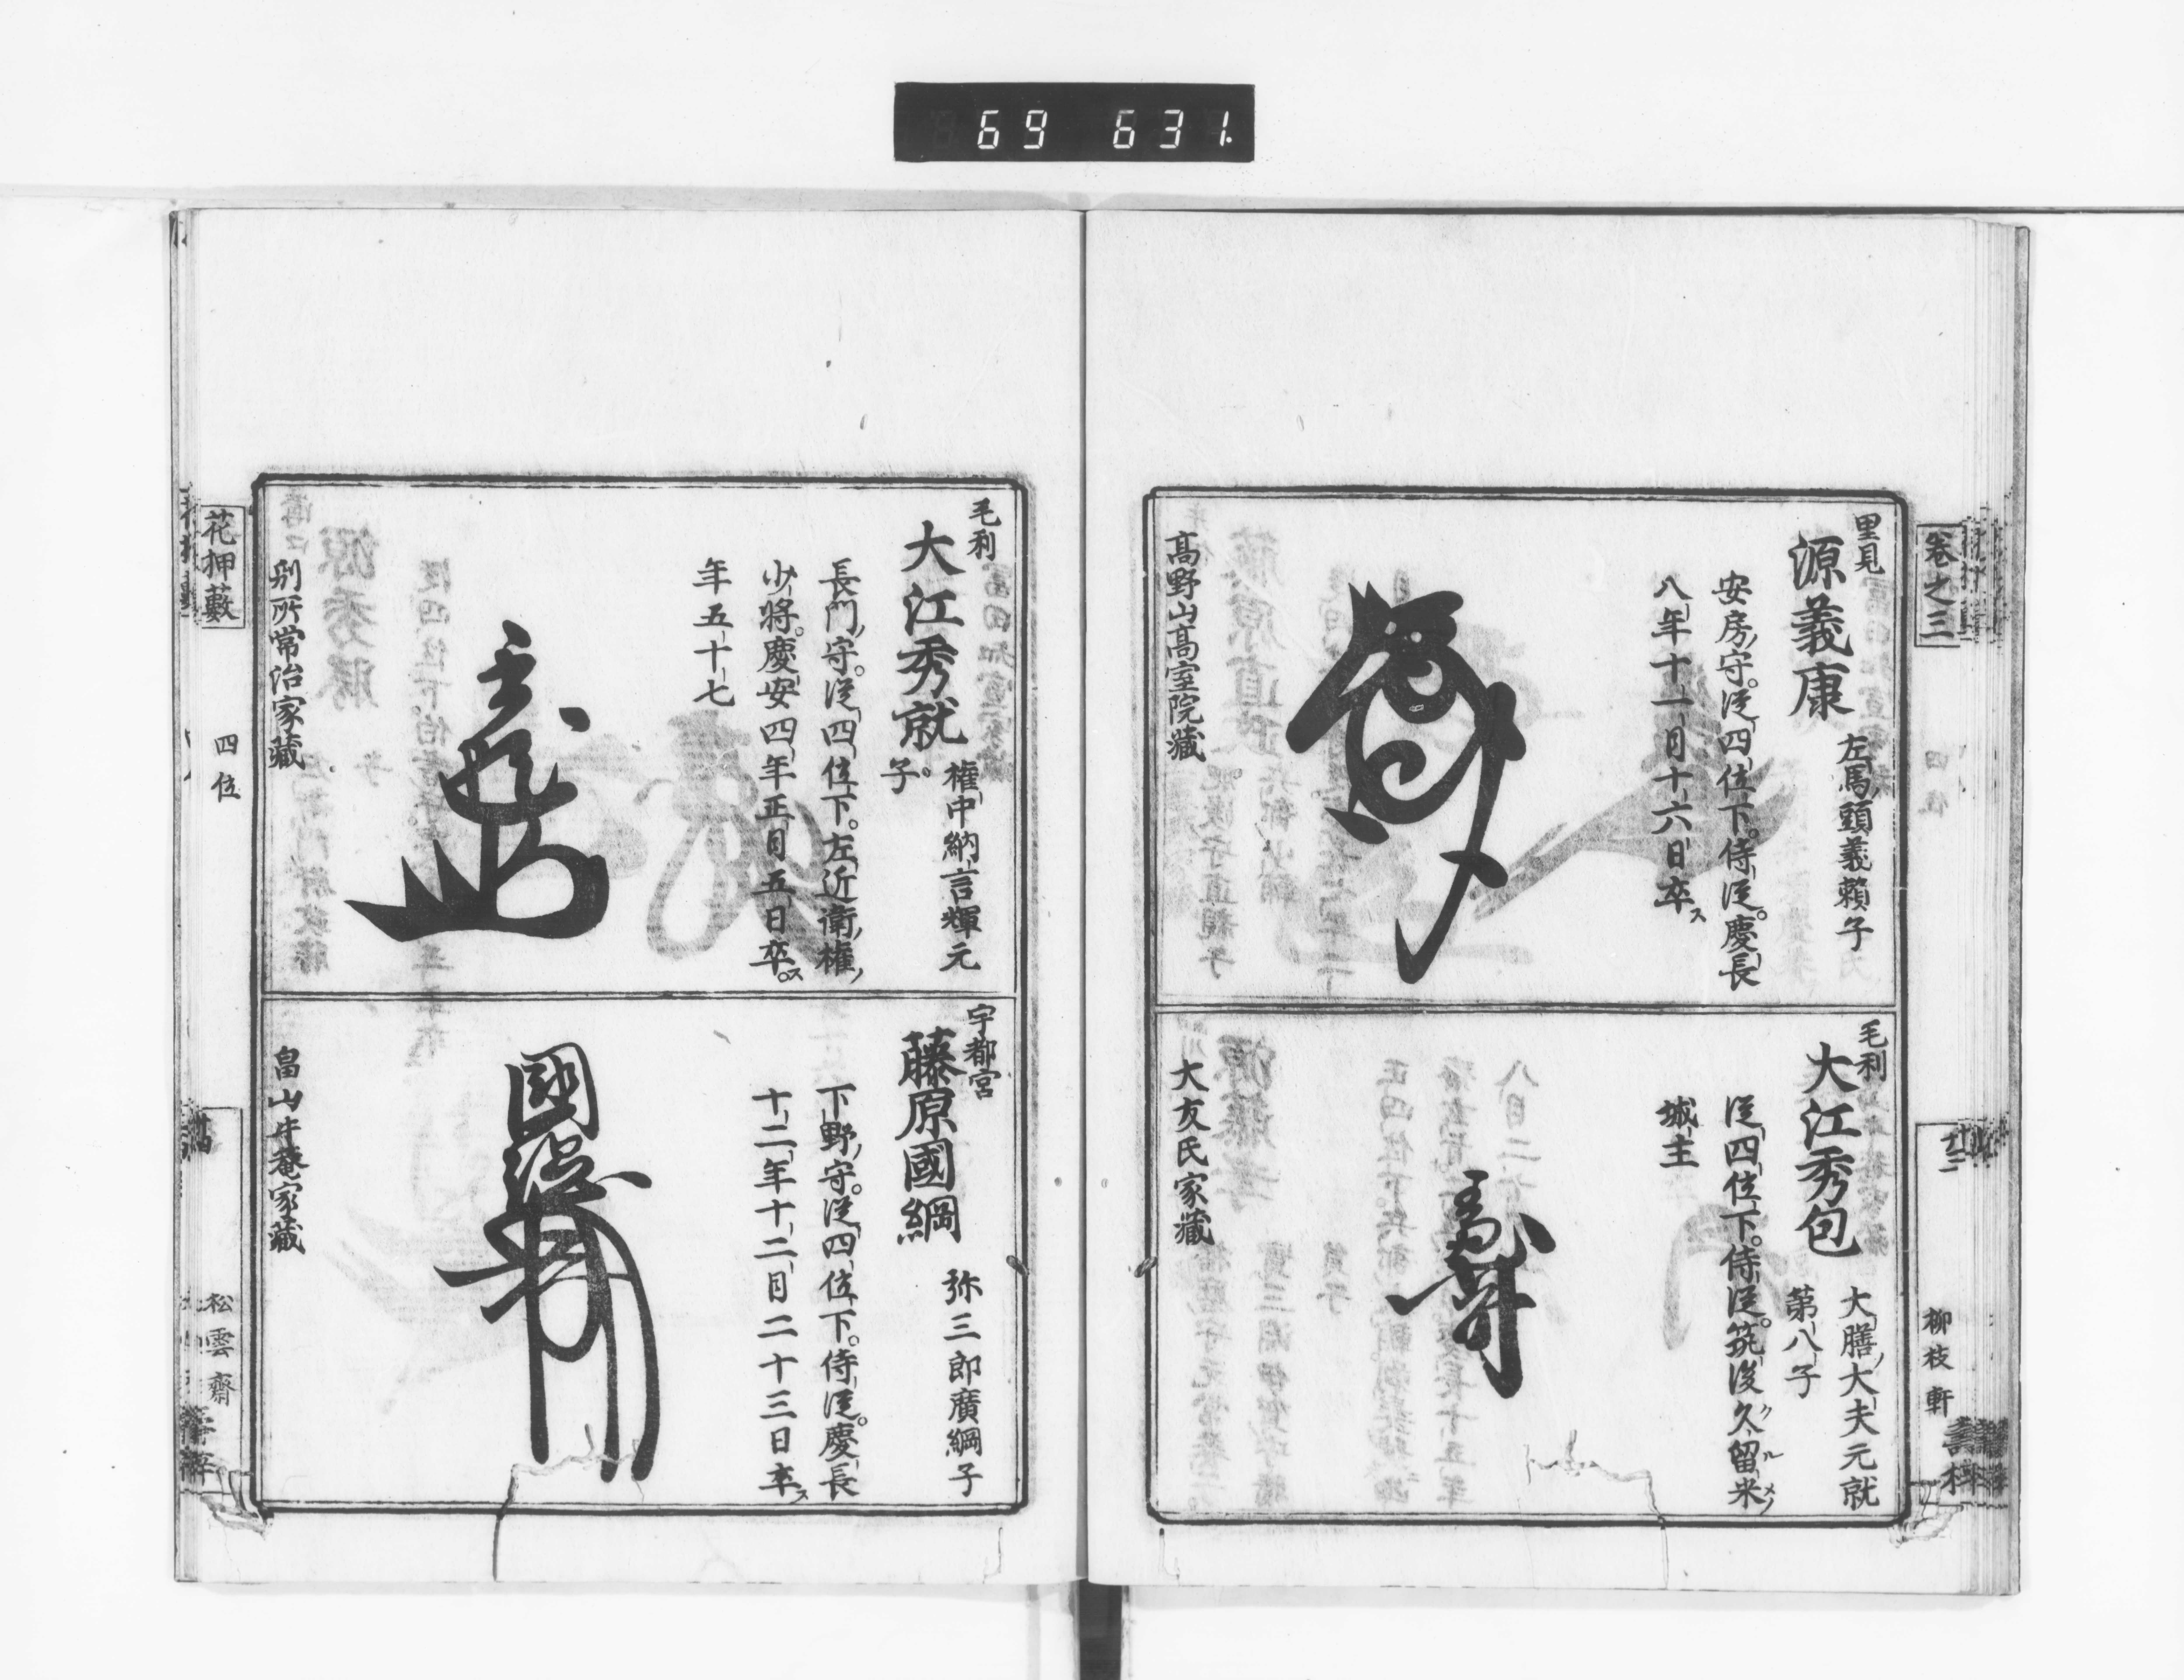 69 631.
巻之三
柳枝軒
里見
源義康
左馬頭義頼子
安房守。従四位下。侍従。慶長
八年十一月十六日卒ス
高野山高室院蔵
毛利
大江秀包
大膳大夫元就
第八子
従四位下。侍従。筑後久留米
城主
大友氏家蔵
毛利
大江秀就
権中納言輝元
子。
長門守。従四位下。左近衛権
少将。慶安四年正月五日卒。ス
年五十七
別所常治家蔵
宇都宮
藤原國綱
弥三郎廣綱子
下野守。従四位下。侍従。慶長
十二年十二月二十三日卒ス
畠山牛菴家蔵
花押藪
四位
松雲齋